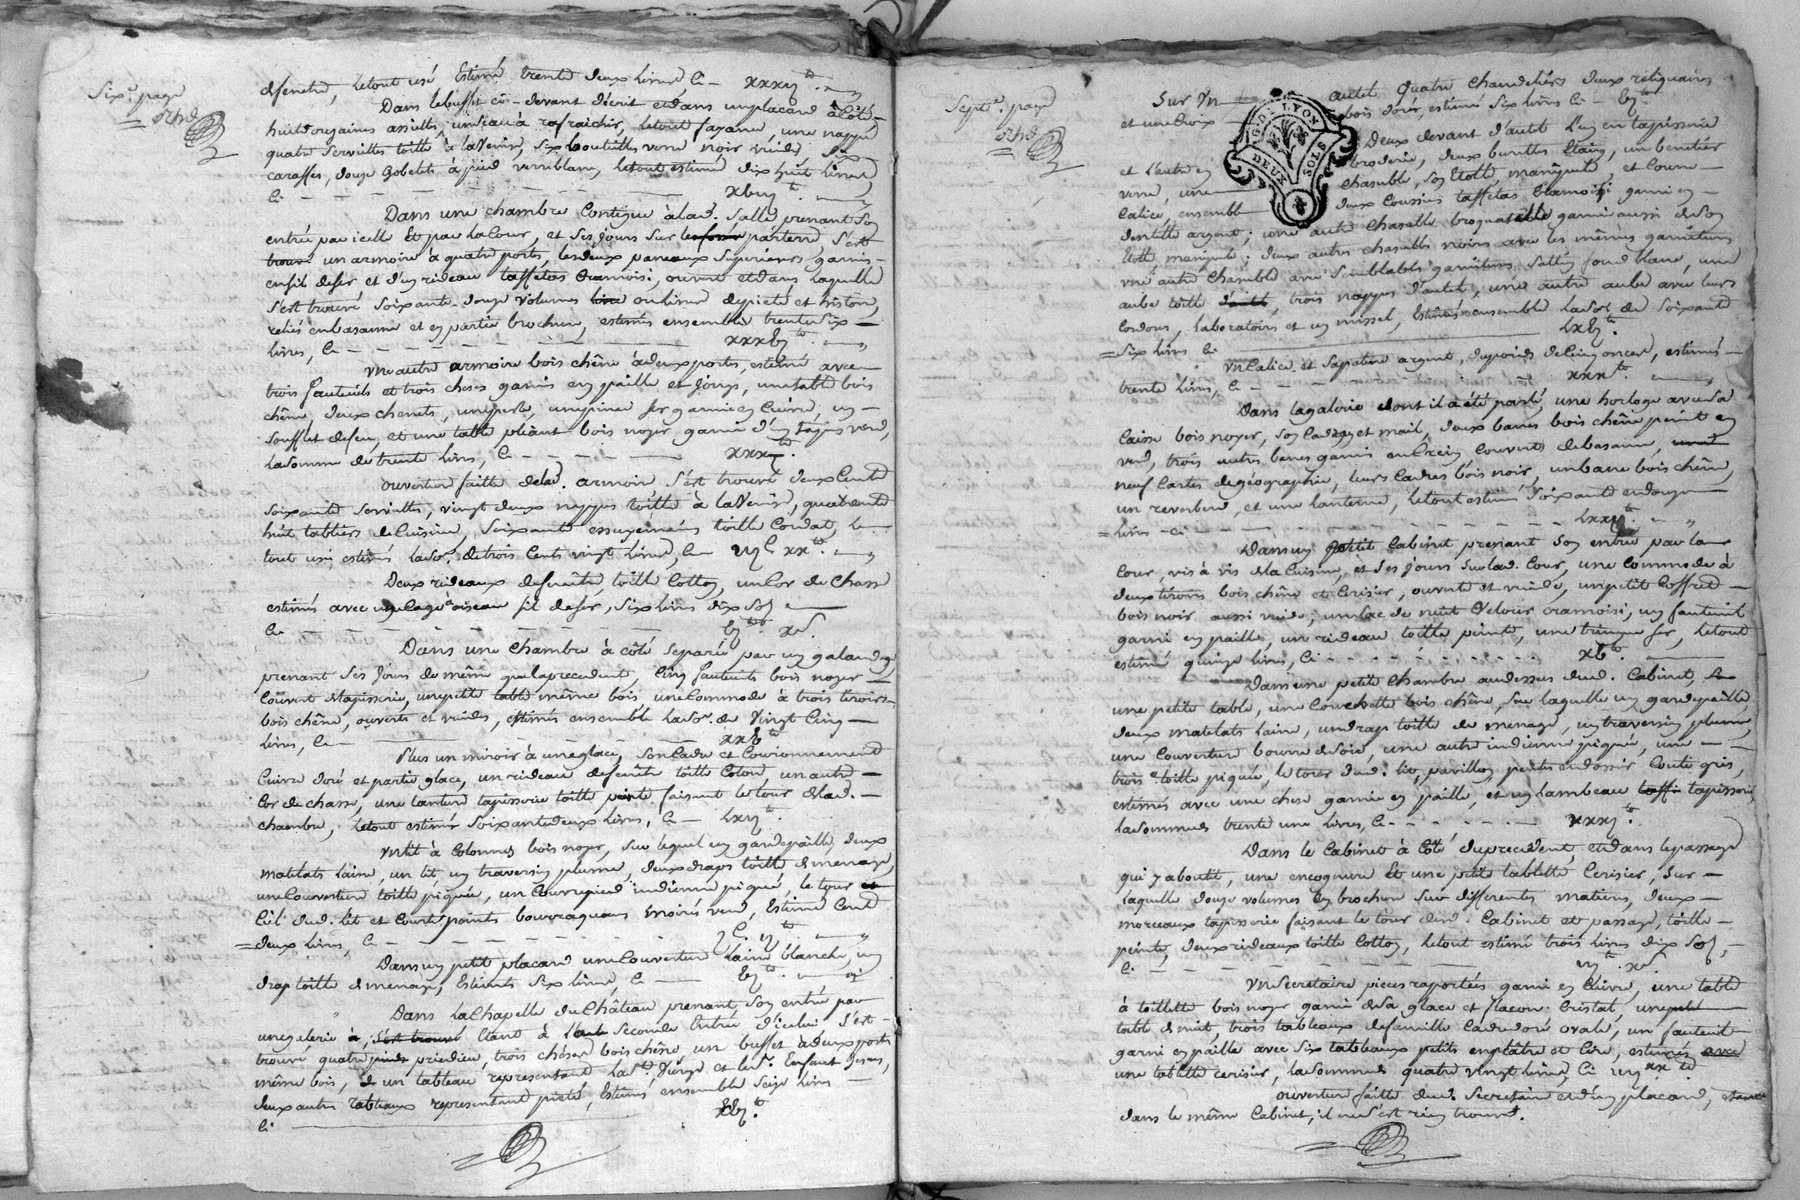 Six.e page
defenetre, letout usé Estimé trente deux Livres, Ci - xxxij tt.
Dans lebuffet ci-devant décrit etdans unplacard àcôté
huit douzaines assiettes, unseau à rafraichir, letout fayance, une nappe
quatre Serviettes toille à laVenise, six bouteilles verre noir vuides, Six
caraffes, douze Gobelets à pied verreblanc, letout estimé dix huit Livres
Ci - xbiij tt.
Dans une chambre Contigue à lad. Salle prenant Son
entrée par icelle Et par laCour, et Ses jours Sur parterre S'est
trouvé un armoire a quatre portes, lesdeux paneaux Supérieurs garnis
enfil defer et d'un rideau taffetas Cramoisi, ouverte etdans laquelle
s'est trouvé Soixante-douze volumes ou livres depieté et histoire,
reliés enbasanne et en partie brochure, estimés ensemble trente Six
Livres, Ci - xxxbj tt.
Une autre armoire bois chêne àdeux portes, estimé avec
trois fauteuils et trois cheses garnis en paille et joncs, unetable bois
chêne, deux chenets, unepele, unepince fer garnie en Cuivre, un
Soufflet defeu, et une table pliant bois noyer garnie d'un tapis verd,
lasomme de trente Livres, Ci - xxx tt.
ouverture faitte delad. armoire S'est trouvé deux Cents
Soixante Serviettes, vingt deux nappes toille à laVenise, quatrevingt
huit tabliers deCuisine, Soixante essuyemains toille Cordat, le
tout usé estimés laSoe. detrois Cents vingt Livres, Ci - iij C xx tt.
Deux rideaux defenêtre, toille Cotton, unCor de Chasse
estimés avec unecage d'oiseau fil defer, Six Livres dix Sols
Ci - bj tt. x s.
Dans une Chambre à côté Separée par un galandage,
prenant Ses jours demême que laprecedente, Cinq fauteuils bois noyer
Couvert detapisserie, unepetite table même bois uneCommode à trois tiroirs
bois chêne, ouverte et vuides, estimés ensemble laSoe. de Vingt Cinq
Livres, Ci - xxb tt.
Plus un miroir à uneglace, sonCadre et Couronnement
Cuivre doré et partie glace, un rideau defenêtre toille Coton, un autre
Cor de chasse, une tanture tapisserie toille peinte faisant letour delad.
chambre, letout estimé Soixantedeux Livres, Ci - lxij tt.
Un lit à Colonnes bois noyer, Sur lequel un gardepaille, deux
matelats Laine, un lit, un traversin plume, deux draps toille de menage,
unecouverture toille piquée, un Couvrepied indienne piqué, le tour et
Ciel dud. Lit et Courtepointe bourraquans moirés verd, Estimé Cent
= deux Livres, Ci - C. ij tt.
Dans un petit placard uneCouverture Laine blanche, un
drap toille de menage, Estimés Six Livres, Ci - bj tt.
Dans la Chapelle du Château prenant Son entrée par
unegalerie à, s'est trouvé étant à Seconde Entrée d'icelui S'est
trouvé quatre priedieu, trois chéses bois chêne un buffet àdeux portes
même bois, & un tableau representant laSte. Vierge et leSr. Enfant Jesus,
deux autres tableaux representant pieté, Estimés ensemble Seize Livres
Ci - xbj tt.
Sept.e page
Sur Un autel Quatre Chandeliers deux reliquaires
et uneCroix bois doré, estimé Six Livres Ci - bj tt.
Deux devant d'autel L'un en tapisserie
et l'autre en broderie, deux burettes Etain, un benetier
verre, une chasuble, Son Etolle, manipule, et Couvre
Calice, ensemble deux Coussins taffetas Cramoisi garni en
dentelle argent; une autre Chasuble broquatelle garnie aussi deSon
Etolle manipule; deux autres chasubles noires avec les mêmes garnitures
une autre Chasuble avec Semblables garnitures Sattin fond blanc, une
aube toille, trois nappes d'autel, une autre aube avec leurs
Cordons, laboratoire et un missel, Estimés ensemble laSoe. de Soixante
= Six Livres Ci - lxbj tt.
UnCalice et Sapatene argent, dupoids deCinq onces, estimés
trente Livres, Ci - xxx tt.
Dans lagalerie dont il a été parlé, une horloge avec Sa
Caisse bois noyer, Son Cadran et mail, deux bancs bois chêne peint en
verd, trois autres bancs garnis enCrein Couverts debasanne,
neuf Cartes degéographie, leurs Cadres bois noir, un banc bois chêne,
un reverbere, et une lanterne, letout estimé Soixante et douze
= Livres - ci - lxxij tt.
Dans un petit Cabinet prenant Son entrée par la
Cour, vis à vis de la Cuisine, et Ses jours Sur lad. Cour, une Commode à
deux tiroirs bois chêne et Cerisier, ouverte et vuide, un petit Coffret
bois noir aussi vuide; un sac de nuit Velour cramoisi, un fauteuil
garni en paille, un rideau toille peinte, une tringue fer, letout
estimé quinze Livres, Ci - xb tt.
Dans une petite Chambre audessus dud. Cabinet,
une petite table, une Couchette bois chêne, Sur laquelle un gardepaille
deux matelats Laine, undrap toille de menage, un traversin plume
une Couverture bourre desoie, une autre indienne piquée, une
troise. toille piquée, le tour dud. lit, pavillon pentes en dossier Coutis gris,
estimés avec une chese garnie en paille, et un Lambeau tapisserie,
lasommede trente une Livres, Ci - xxxj tt.
Dans le Cabinet à Côté duprecedent, etdans lepassage
qui y aboutit, une encognure Et une petite tablette Cerisier, Sur
Laquelle douze volumes en brochure Sur differentes matieres, deux
morceaux tapisserie faisant le tour dud. Cabinet et passage, toille
peinte, deuxrideaux toille Cotton, letout estimé trois Livres dix Sols,
Ci - iij tt. x s.
Un Secretaire pieces raportées garni en Cuivre, une table
à toillette bois noyer garni de Sa glace et flacon Cristal, une petite
table de nuit, trois tableaux defamille Cadredoré ovale, un fauteuil
garni en paille avec Six tableaux petits en plâtre et Cire, estimés avec
une tablette cerisier, lasommede quatre vingt Livres, Ci - iiij xx tt.
ouverture faitte dud. Secretaire et d'un placard, étant
dans le même Cabinet, il ne s'est rien trouvé.
G. D. LYON
DEUX SOLS